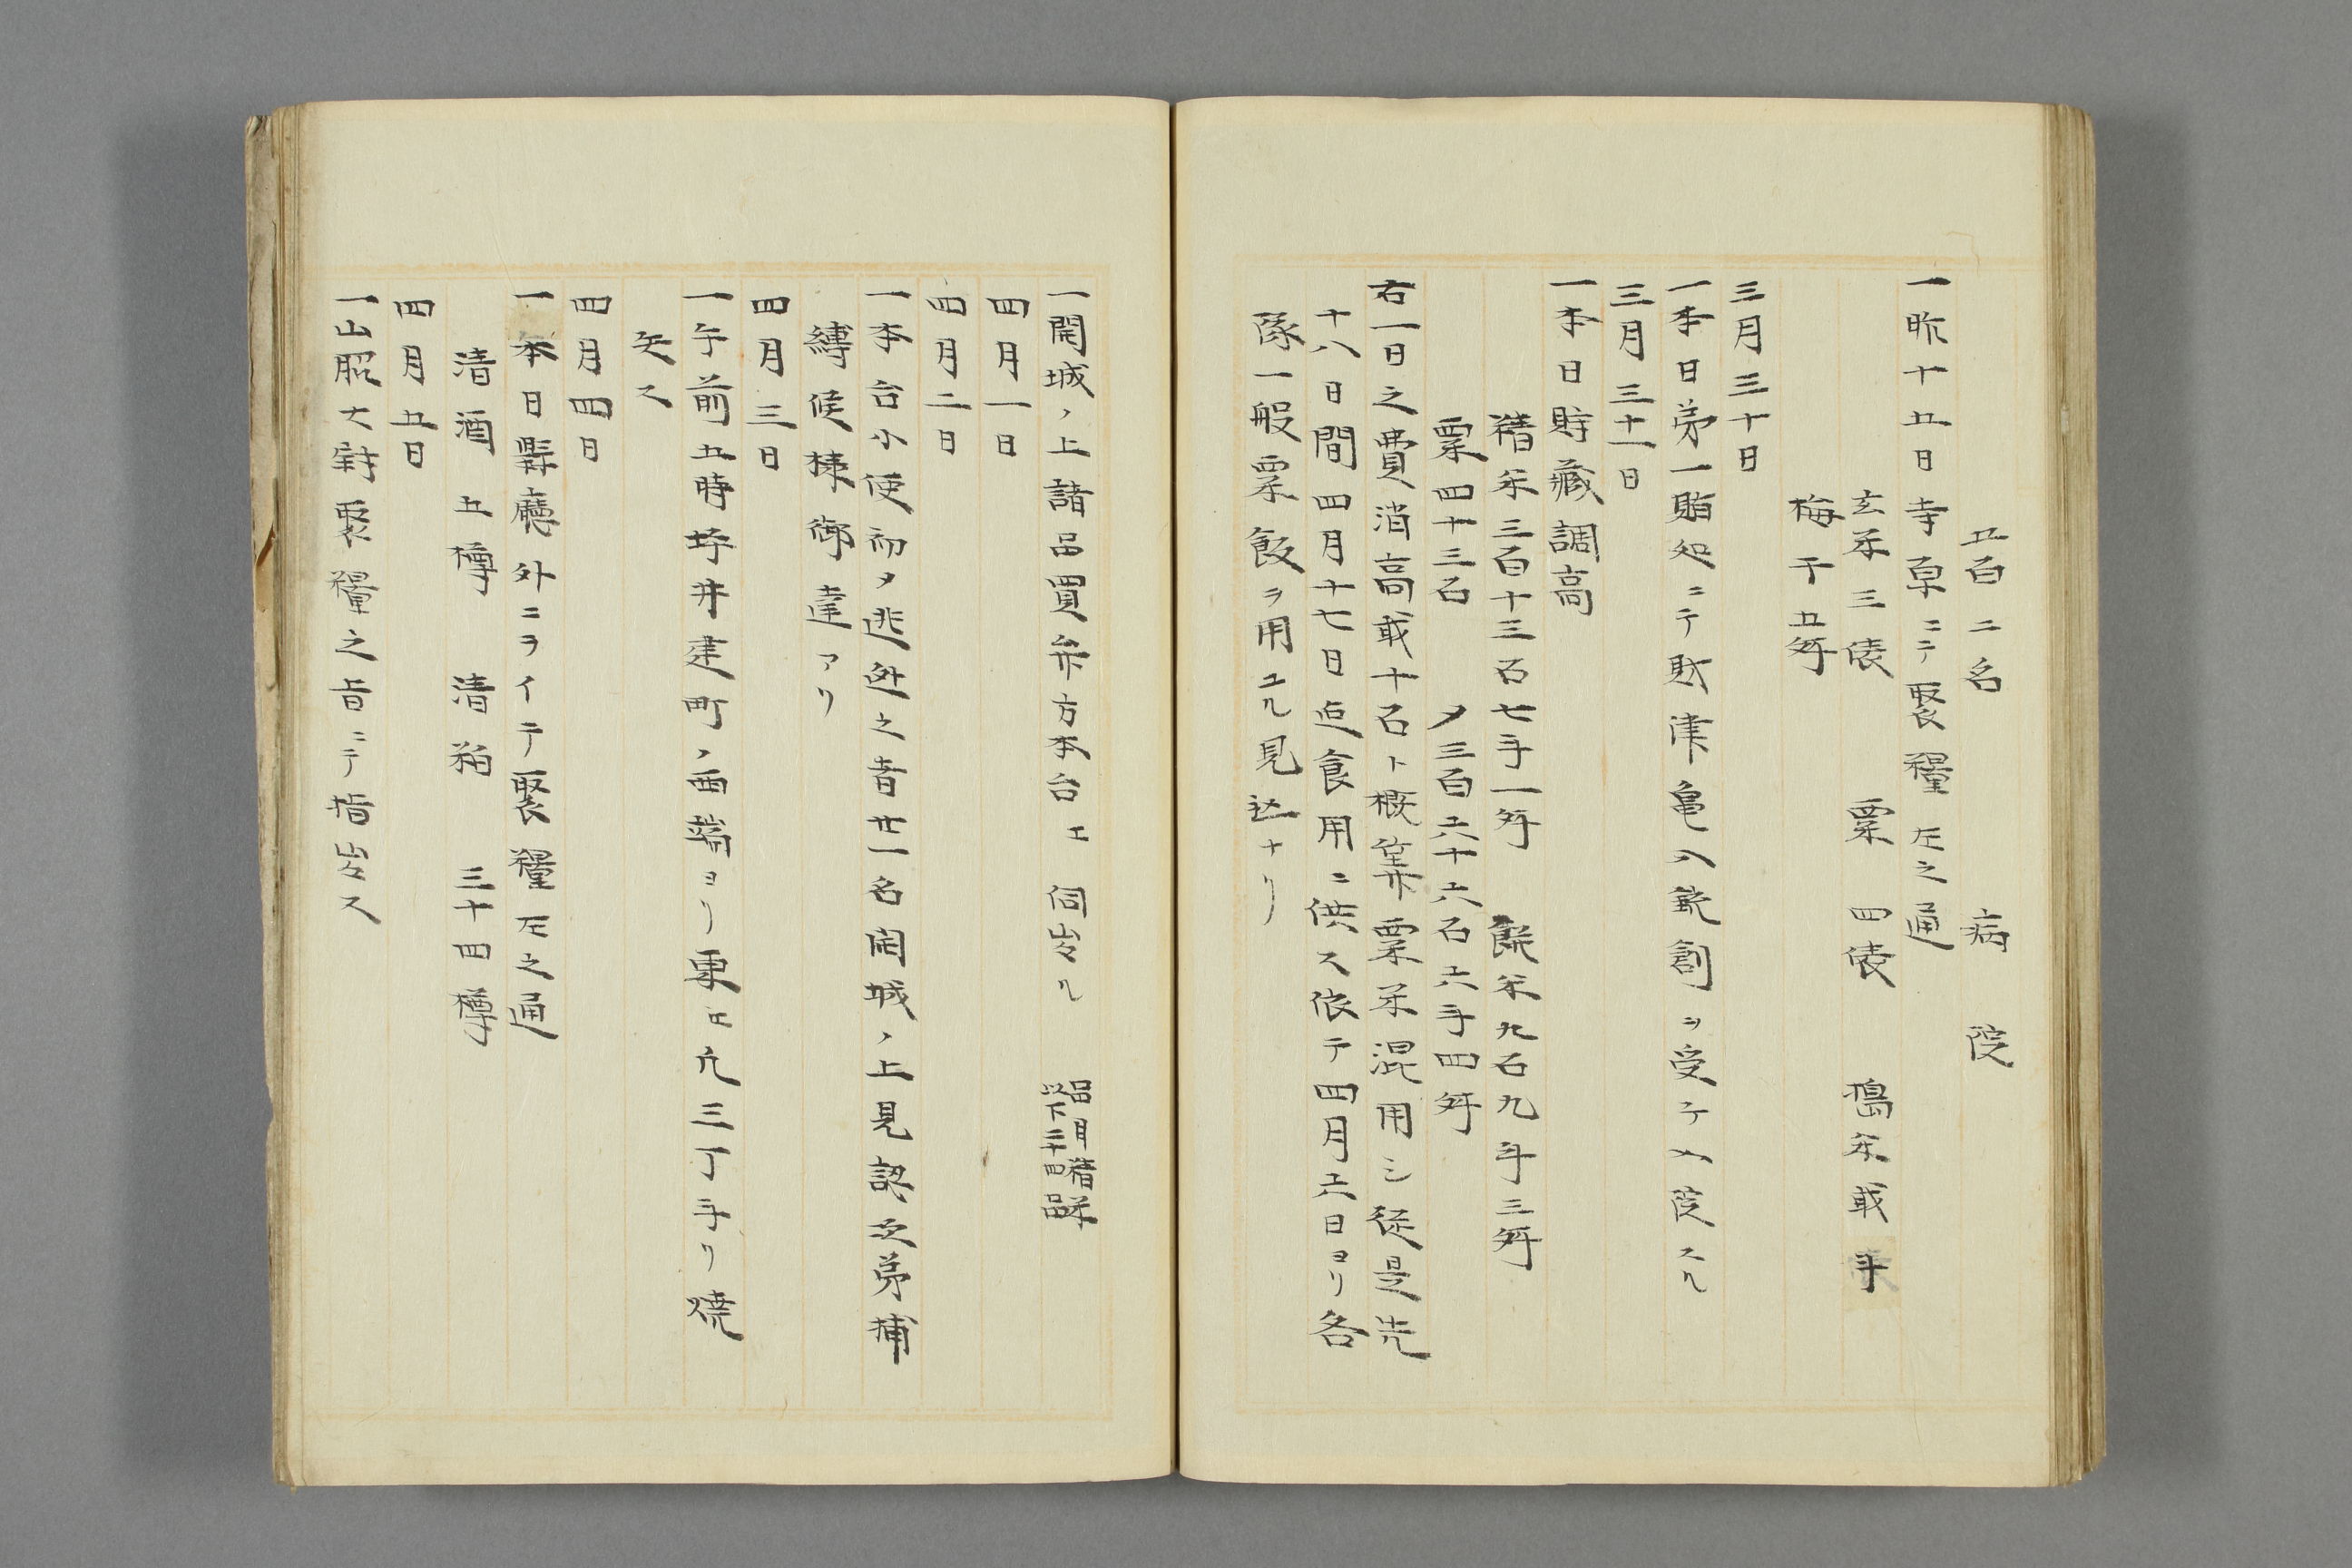 五百二名　　病　院
一昨十五日寺原ニテ聚糧左之通
玄米三俵　粟四俵　搗米貮斗
梅干五舛
三月三十日
一本日第一賄処ニテ財津亀八銃創ヲ受ケ入院スル
三月三十一日
一本日貯蔵調高
精米三百十三石七斗一舛　餱米九石九斗三舛
粟四十三石　〆三百六十六石六斗四舛
右一日之費消高貮十石ト概算粟米混用シ従是先
十八日間四月十七日迄食用ニ供ス依テ四月六日ヨリ各
隊一般粟飯ヲ用ユル見込ナリ
一開城ノ上諸品買弁方本台エ伺出ル　品目精米以下三十四品
四月一日
四月二日
一本台小使初メ逃逃之者廿一名開城ノ上見認次第捕
縛候様御達アリ
四月三日
一午前五時坪井建町ノ西端ヨリ東エ凡三丁斗リ焼
失ス
四月四日
一本日縣廳外ニヲイテ聚糧左之通
清酒五樽　清粕　三十四樽
四月五日
一山脇大尉聚糧之旨ニテ指出ス